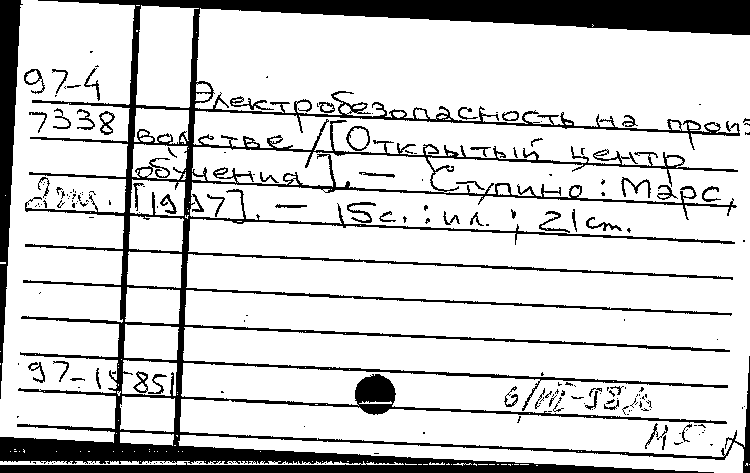 97-4 Электробезопасность на произ
7338 водстве / [Открытый центр
обучения]. — Ступино : Марс,
2эт. [1997]. — 15с. : ил. ; 21 cm.
97-15851
6/VII-98